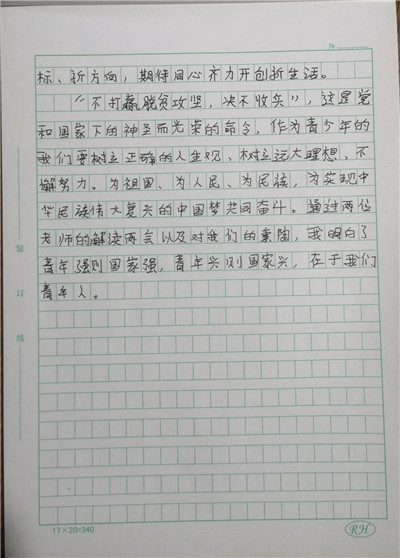 №
标、新方向，期待同心齐力开创新生活。
“不打赢脱贫攻坚，决不收兵”，这是党
和国家下的神圣而光荣的命令，作为青少年的
我们要树立正确的人生观、树立远大理想、不
懈努力。为祖国、为人民、为民族，为实现中
华民族伟大复兴的中国梦共同奋斗。通过两位
老师的解读两会以及对我们的熏陶，我明白了
青年强则国家强，青年兴则国家兴，在于我们
青年人。
装
订
线
17×20=340
RH